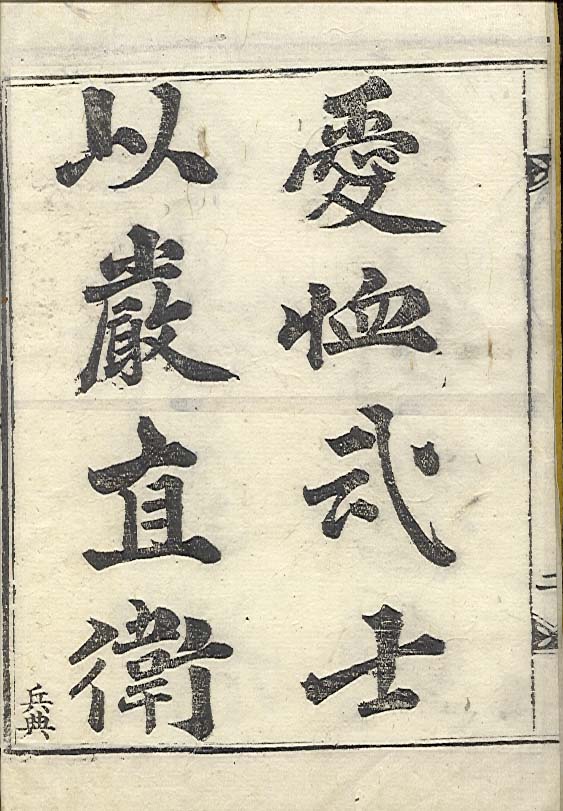 愛恤武士
以嚴直衛
兵典
二